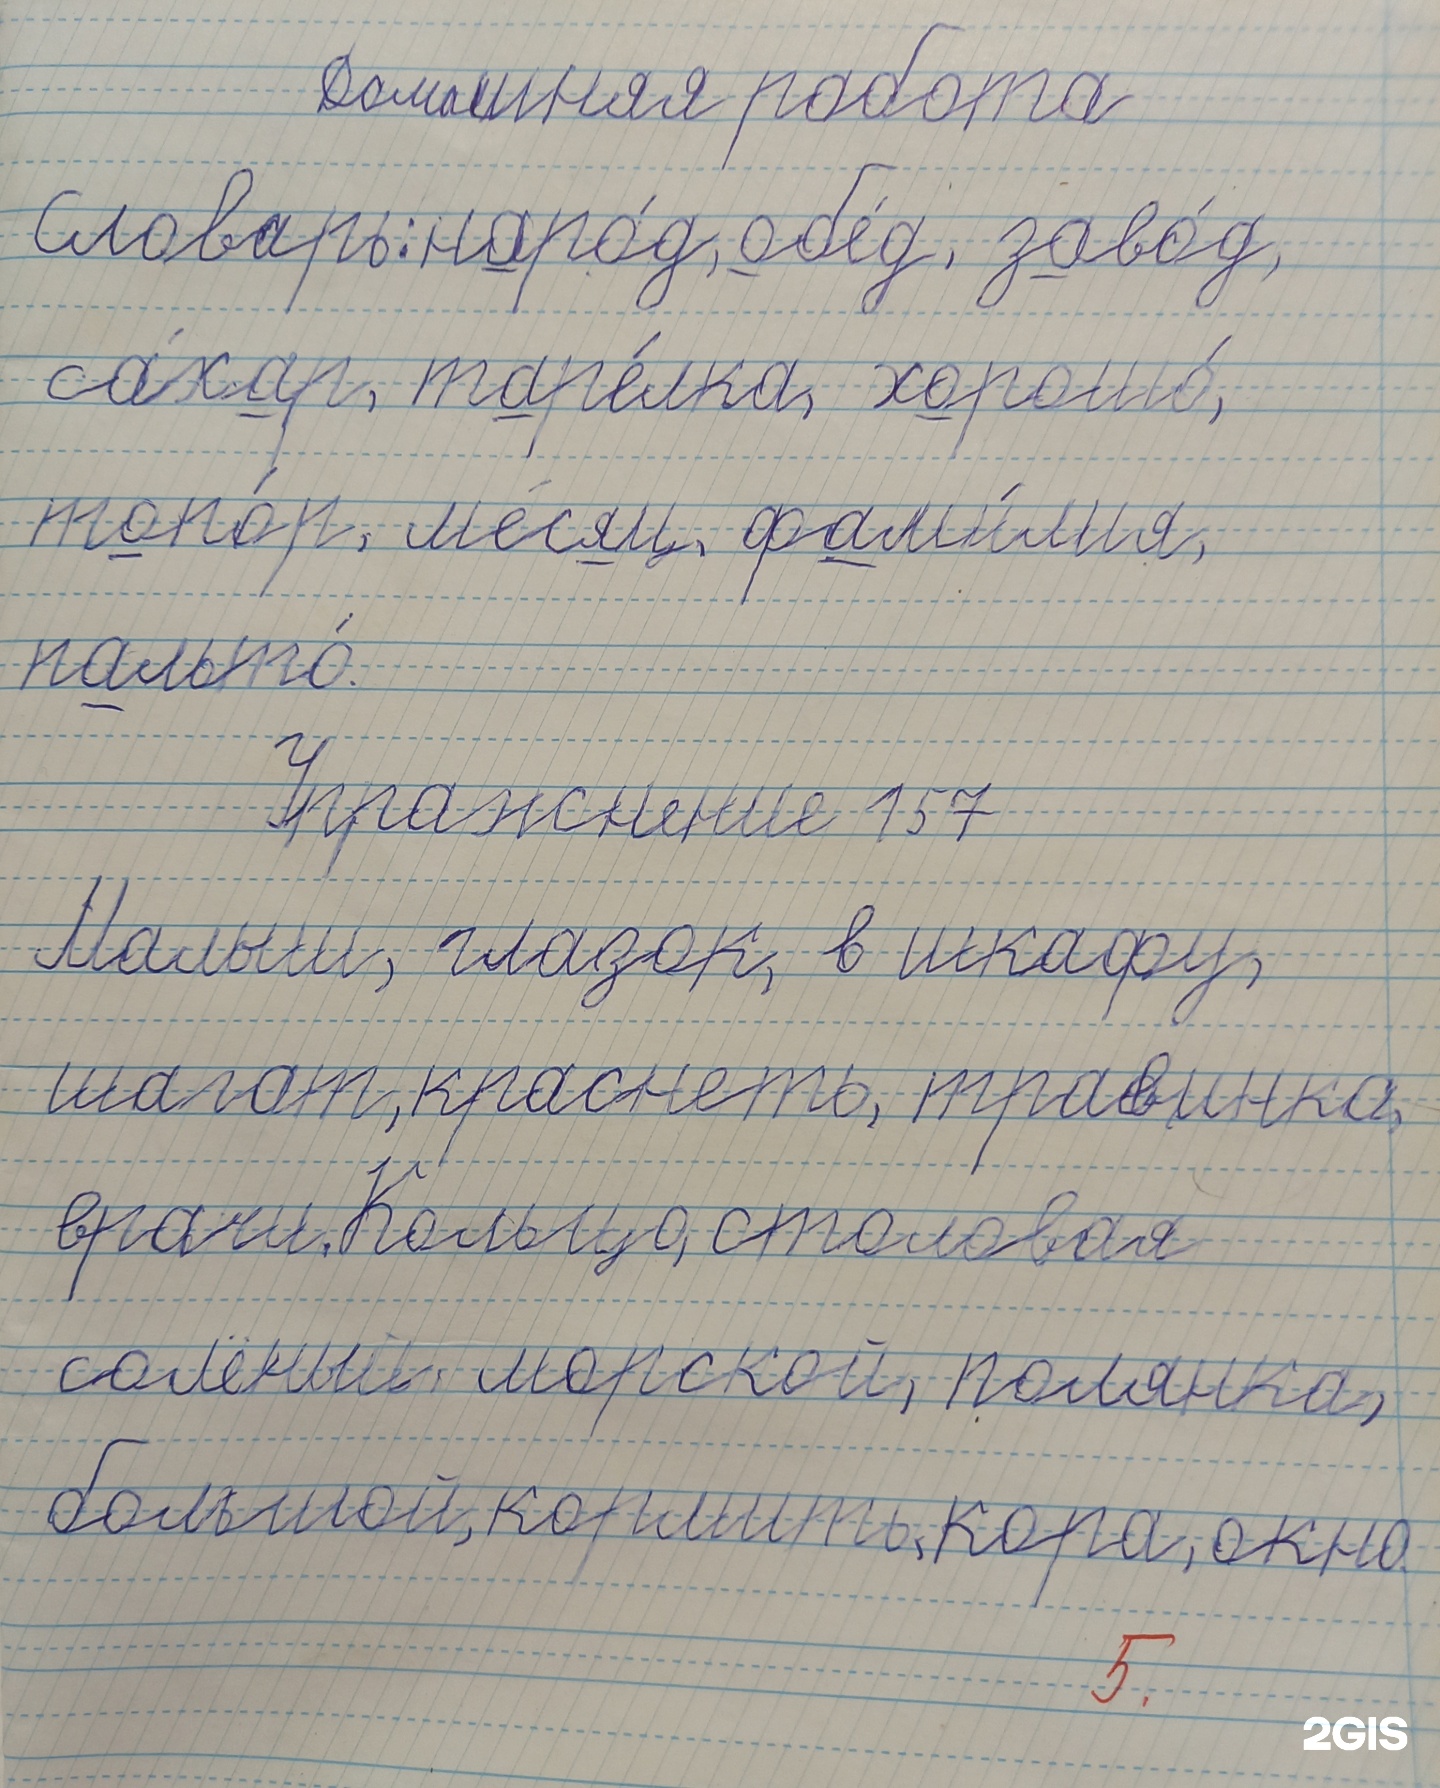 Домашняя работа
Словарь: наро́д, обе́д, заво́д,
са́хар, таре́лка, хорошо́,
топо́р, ме́сяц, фами́лия,
пальто́.
Упражнение 157
Малыш, глазок, в шкафу,
шагат, краснеть, травинка,
врачи. Кольцо, столовая
солёный, морской, полянка,
большой, кормить, кора, окно.
5.
2GIS